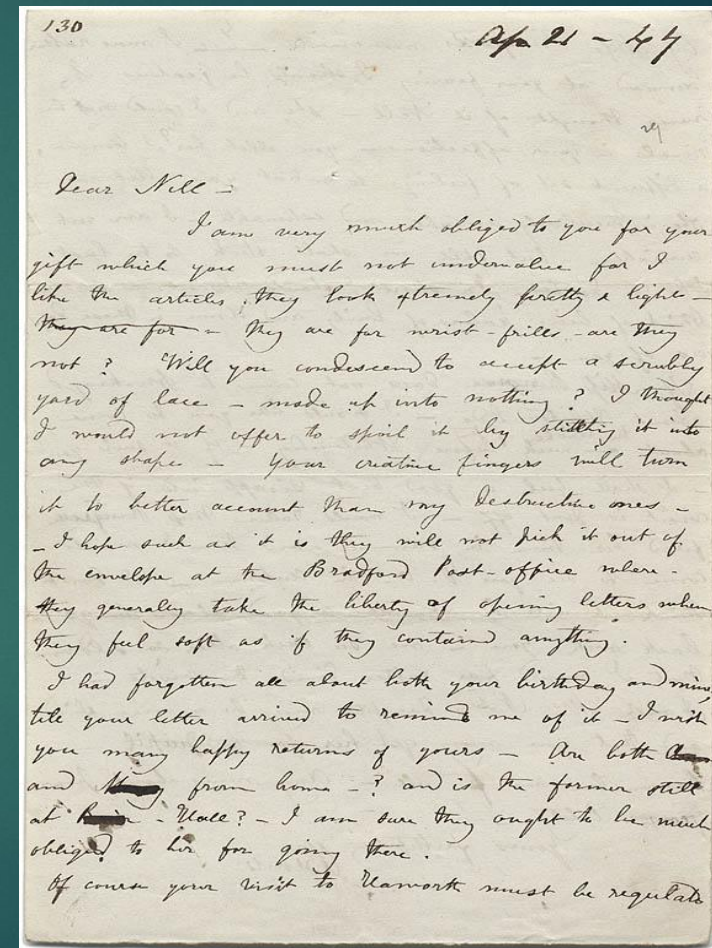 130
Ap 21 - 47
29
Dear Nell -
I am very much obliged to you for your
gift which you must not undervalue for I
like the articles; they look extremely pretty & light -
they are for - they are for wrist-frills - are they
not? Will you condescend to accept a scrubby
yard of lace - made up into nothing? I thought
I would not offer to spoil it by stitching it into
any shape - Your creative fingers will turn
it to better account than my destructive ones -
- I hope such as it is they will not pick it out of
the envelope at the Bradford Post-office where -
they generally take the liberty of opening letters when
they feel soft as if they contained anything.
I had forgotten all about both your birthday and mine,
till your letter arrived to remind me of it - I wish
you many happy returns of yours - Are both
and from home - ? and is the former still
at - Hall? - I am sure they ought to be much
obliged to her for going there.
Of course your visit to Haworth must be regulated